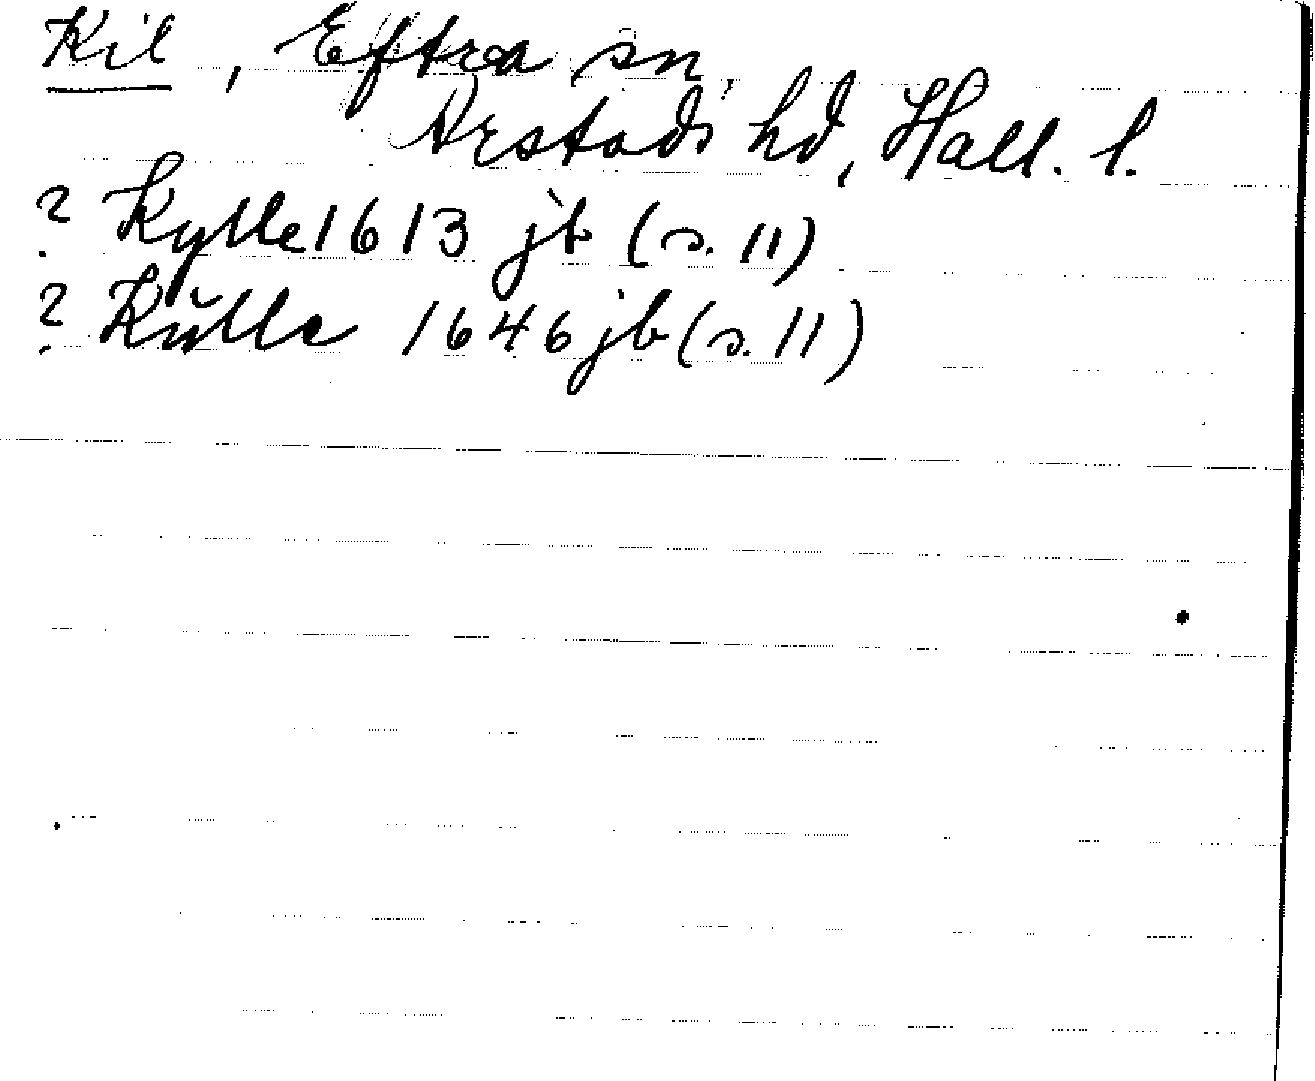 Kil, Eftra sn,
Årstads hd, Hall. l.
? Kylle 1613 jb (s. 11)
? Kŭlle 1646 jb (s. 11)